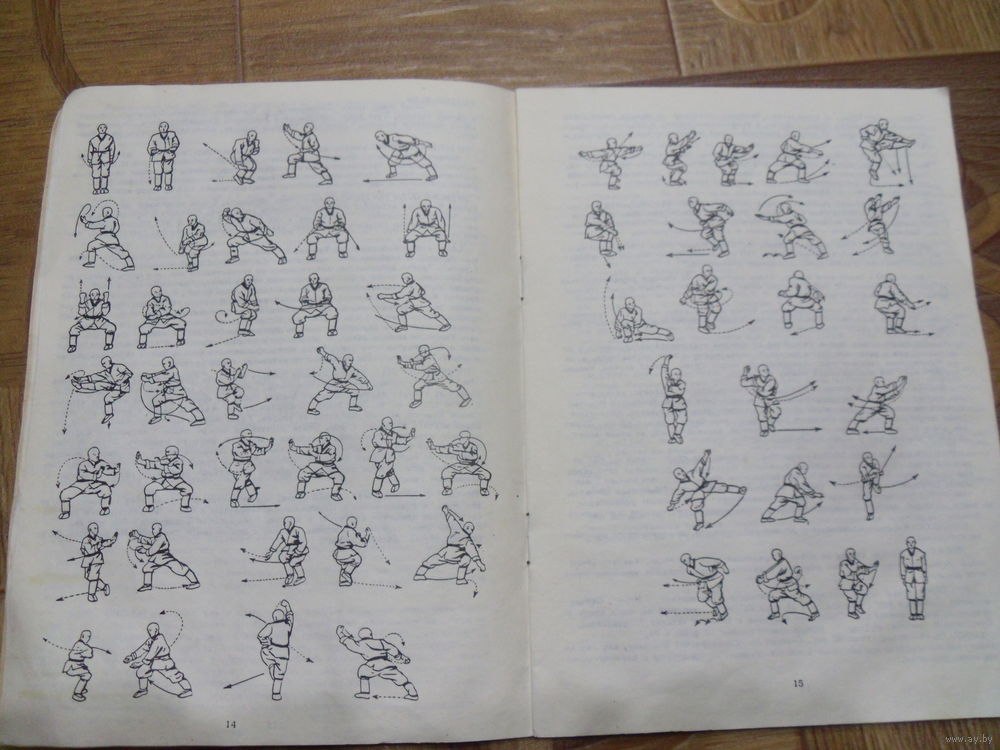 14
15
www.ay.by